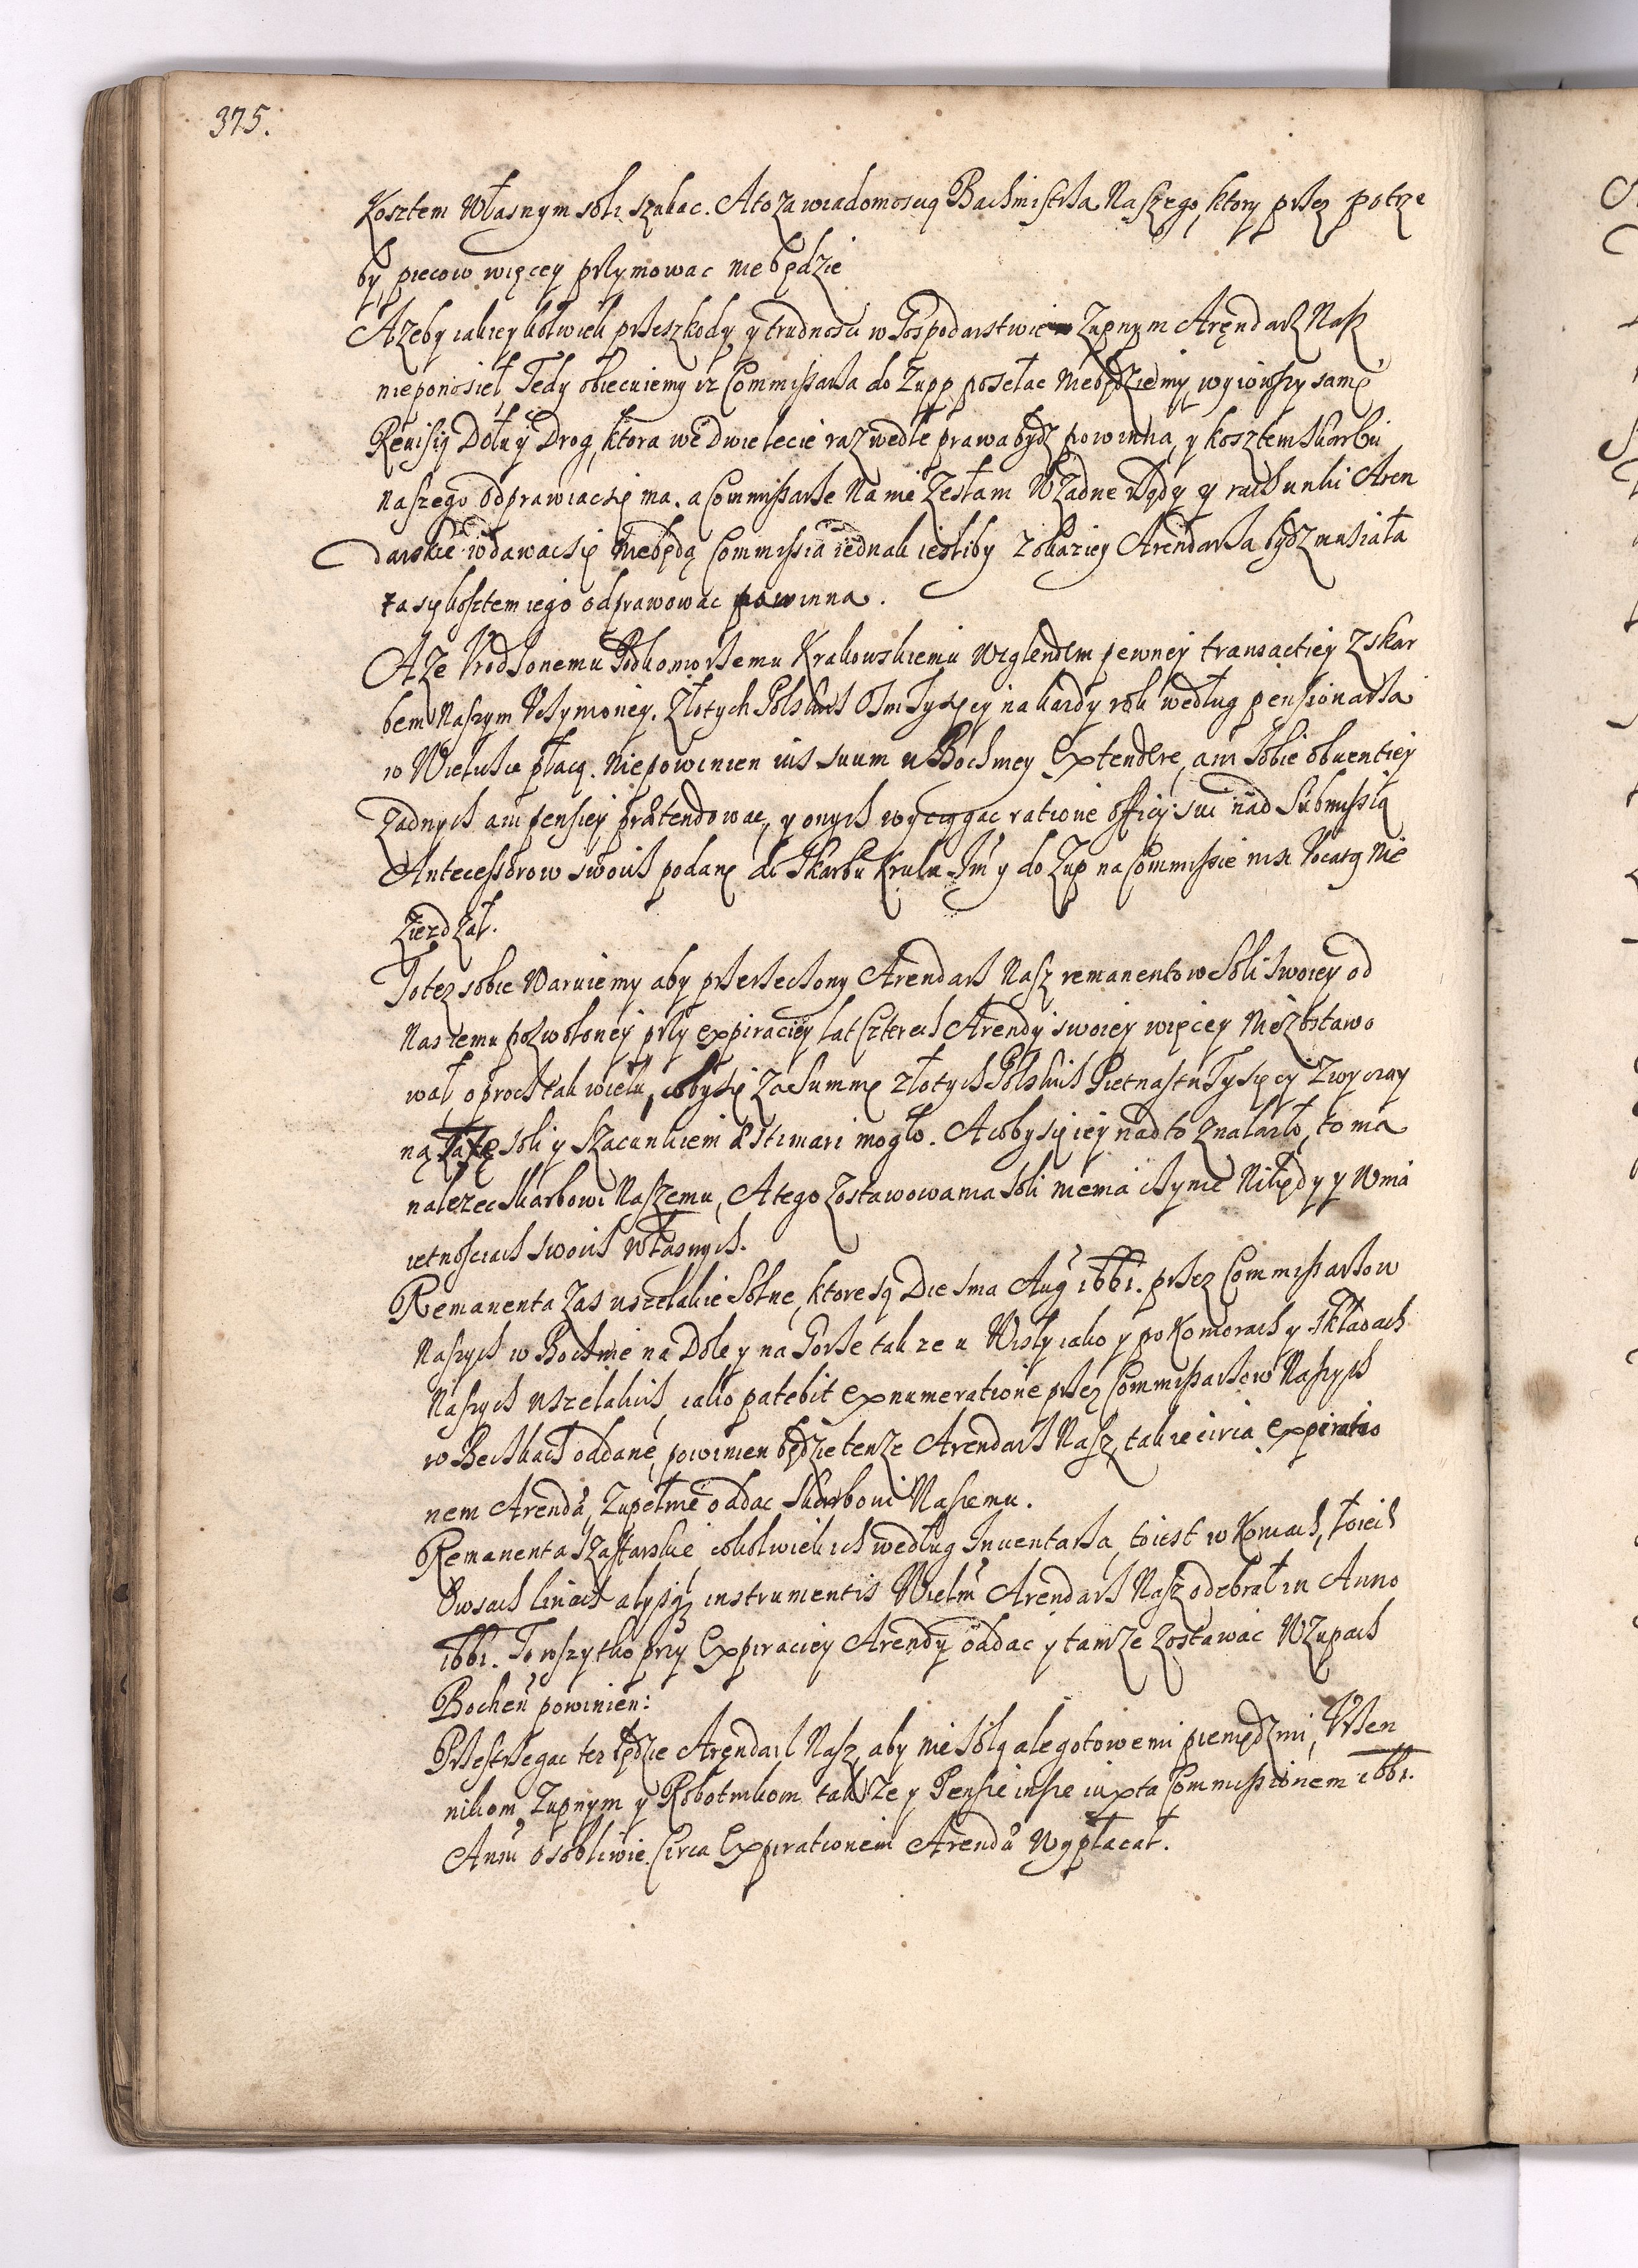 375.
Kosztem Własnym soli szukac. A to za wiadomoscią Bachmistrza Naszego, ktory przez potrze
by, piecow więcey przymowac nie będzie
A zeby iakieykolwiek przeszkody, y trudnosci w Gospodarstwie Zupnym Aręndarz Nasz
nieponosieł Tedy obiecuiemy iz Commissarza do Zupp posełac niebędziemy, wyiowszy samę
Reuisią Dołu y Drog, ktora we dwie lecie raz wedle prawa bydz powinna, y kosztem skarbu
naszego odprawiac się ma. a Commissarze na nie Zesłani W Zadne rządy y rachunki Aren
darskie wdawac się niebędą Commissia iednak iesliby z okaziey Arendarza bydz musiała
ta się kosztem iego odprawowac powinna.
A ze Vrodzonemu Podkomorzemu Krakowskiemu wzglendem pewney transactiey z skar
bem Naszym Vczynioney. Złotych Polskich Osm Tysięcy na kazdy rok według pensionarza
w Wieliczce płacą. Niepowinien ius suum u Bochniey Extendere, ani sobie obuentiey
Zadnych ani pensiey prætendowac, y onych wyciągac ratione officij sui nad Submissią
Antecessorow swoich podanę do Skarbu Krulu Jm y do Zup na Commissie nisi Vocatq nie
Ziezdzał.
To tez sobie Waruiemy aby przerzeczony Arendarz Nasz remanentow Soli swoiey od
Nas iemu pozwoloney przy expiraciey lat Czterech Arendy swoiey więcey nie Zostawo
wał, oprocz tak wielu, coby się Za Summę złotych Polskich Pietnastu Tysięcy Zwyczay
ną Taxę soli y szacunkiem æstimari mogło. A coby się iey nad to Znalazło, to ma
nalezec skarbowi Naszemu, A tego Zostawowania Soli niema czynic Nikędy y W ma
ietnosciach swoich własnych.
Remanenta Zas wszelakie Solne, ktore są Die 1ma Aug 1661. przez Commissarzow
Naszych w Bochnie na Dole y na Gorze tak ze u Wisły iako y po Komorach y składach
Naszych wszelakich, iako patebit ex numeratione przez Commissarzow Naszych
w Beczkach oddane, powinien będzie tenze Arendarz Nasz, takze circa expiratio
nem Arendæ, Zupełnie oddac Skarbowi Naszemu.
Remanenta Szaffarskie cokolwiek ich według Inuentarza, to iest w Koniach, łoiech
Owsach linach alysqz instrumentis Wielm Arendarz Nasz odebrał in Anno
1661. To wszytko przy Expiraciey Arendy oddac y tamze Zostawic W Zupach
Bochen powinien:
Przestrzegac tez będzie Aręndarz Nasz, aby nie Solą ale gotowemi pienędzmi, Vrzen
nikom, Zupnym y Robotnikom takze y Pensie insze iuxta Commissionem 1661.
Anni osobliwie Circa Expirationem Arendæ Wypłacał.